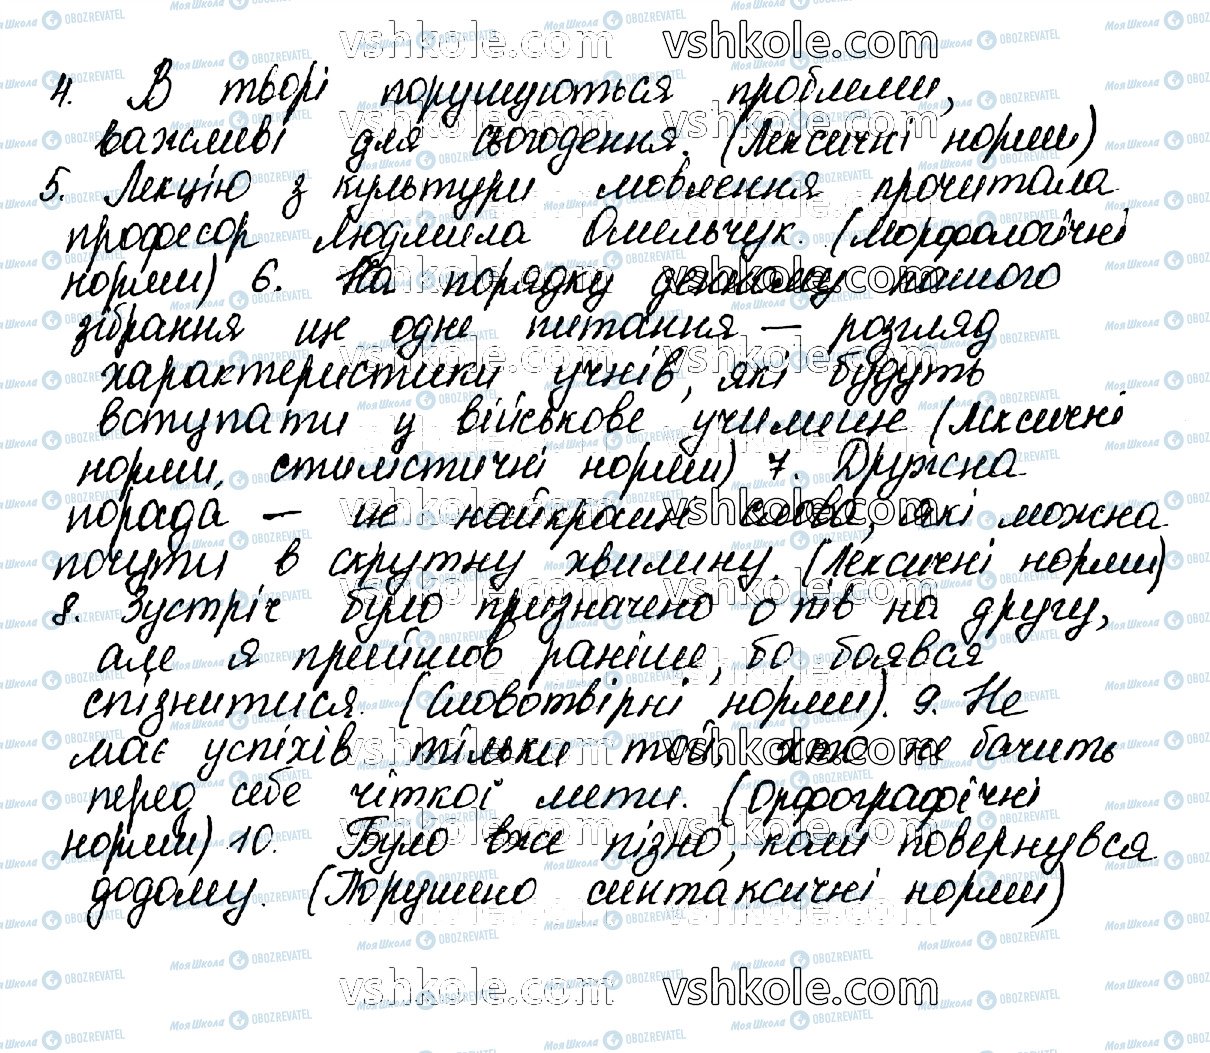 4. В творі порушуються проблеми,
важливі для сьогодення. (Лексичні норми)
5. Лекцію з культури мовлення прочитала
професор Людмила Омельчук. (Морфологічні
норми) 6. На порядку денному нашого
зібрання ще одне питання — розгляд
характеристики учнів, які будуть
вступати у військове училище (Лексичні
норми, стилістичні норми) 7. Дружня
порада — це найкращі слова, які можна
почути в скрутну хвилину. (Лексичні норми)
8. Зустріч було призначено о пів на другу,
але я прийшов раніше, бо боявся
спізнитися. (Словотвірні норми). 9. Не
має успіхів тільки той, хто не бачить
перед себе чіткої мети. (Орфографічні
норми) 10. Було вже пізно, коли повернувся
додому. (Порушено синтаксичні норми)
vshkole.com vshkole.com
Моя Школа OBOZREVATEL